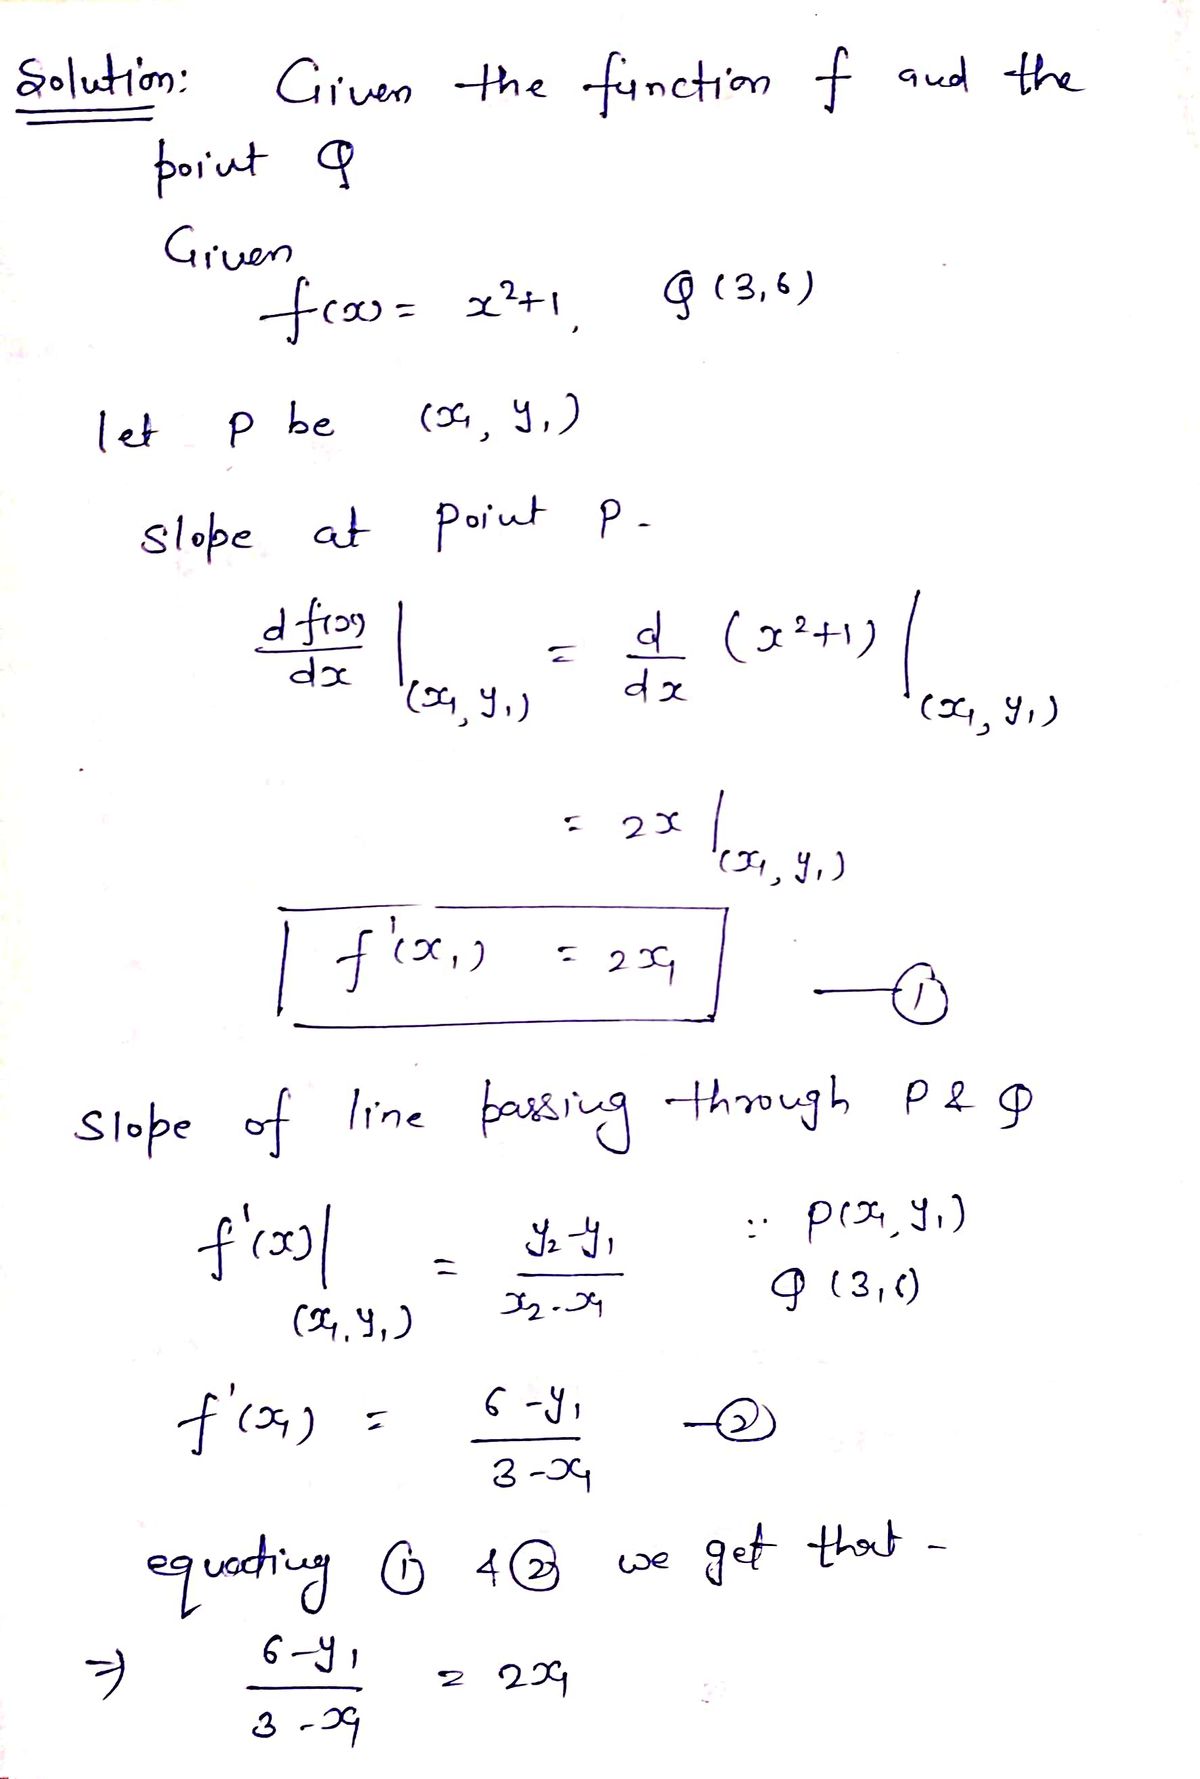 Solution: Given the function f and the
point Q
Given
f(x) = x²+1, Q (3,6)
let P be (x₁, y₁)
slope at point P -
d f(x)/dx |(x₁, y₁) = d/dx (x²+1) |(x₁, y₁)
= 2x |(x₁, y₁)
f'(x₁) = 2x₁ —①
slope of line passing through P & Q
f'(x)|(x₁, y₁) = y₂-y₁/x₂-x₁ ∵ P(x₁, y₁)
Q (3,6)
f'(x₁) = 6-y₁/3-x₁ —②
equating ① & ② we get that -
⇒ 6-y₁/3-x₁ = 2x₁